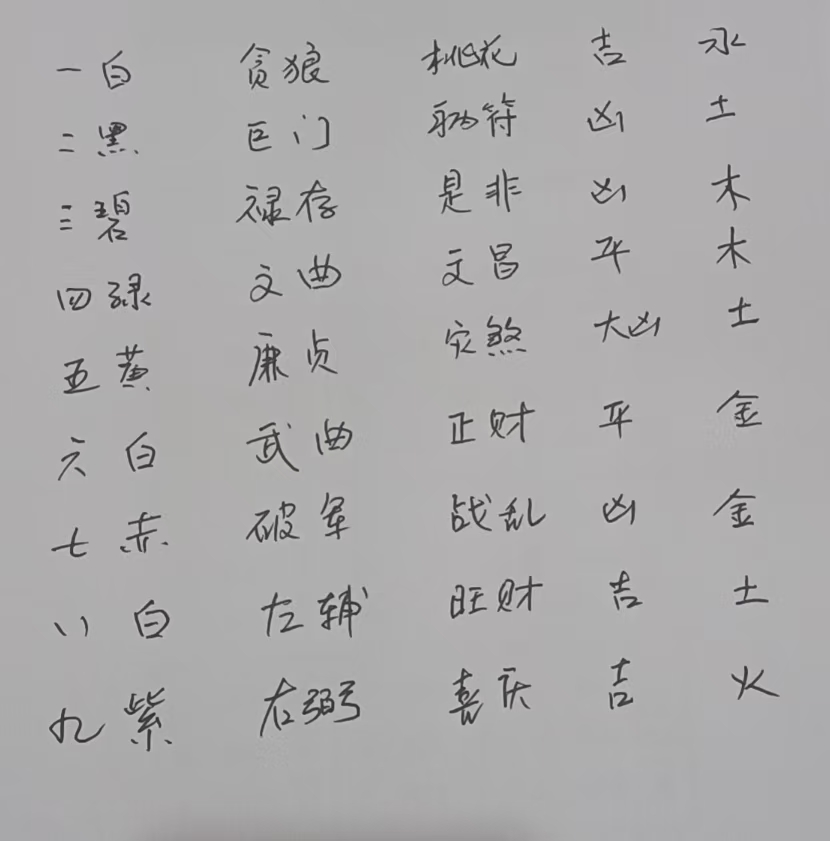 一白 贪狼 桃花 吉 水
二黑 巨门 病符 凶 土
三碧 禄存 是非 凶 木
四禄 文曲 文昌 平 木
五黄 廉贞 灾煞 大凶 土
六白 武曲 正财 平 金
七赤 破军 战乱 凶 金
八白 左辅 旺财 吉 土
九紫 右弼 喜庆 吉 火